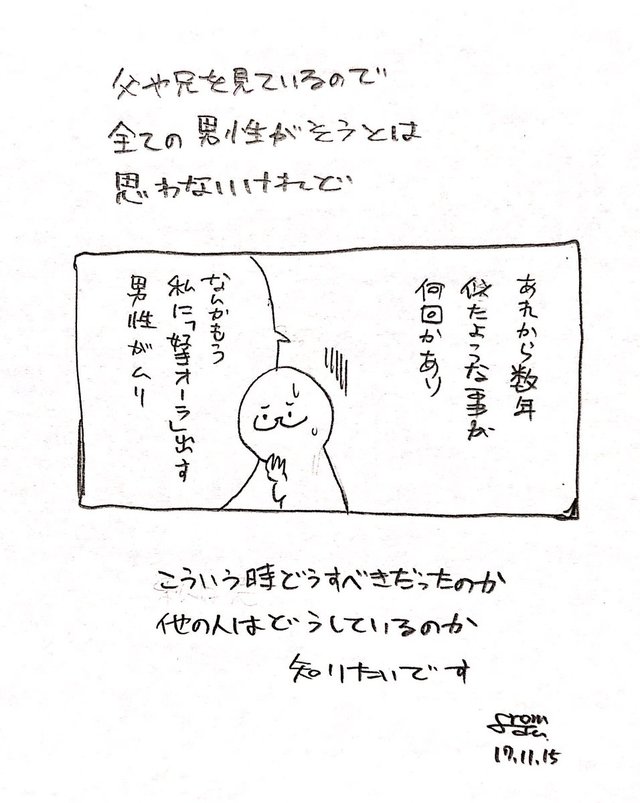 父や兄を見ているので
全ての男性がそうとは
思わないけれど
あれから数年
似たような事が
何回かあり
なんかもう
私に「好きオーラ」出す
男性がムリ
こういう時どうすべきだったのか
他の人はどうしているのか
知りたいです
17.11.15